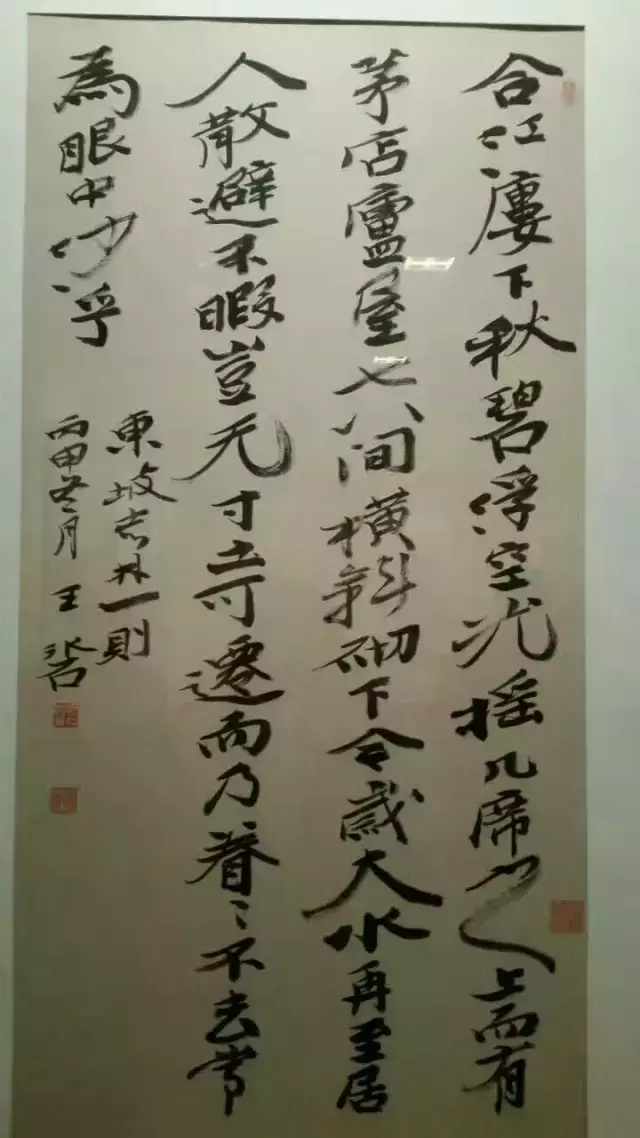 合江廔下秋碧浮空光摇几席之上而有
茅店廬屋七八间橫斜砌下今歲大水再至居
人散避不暇豈无寸土可遷而乃眷〻不去常
為眼中沙乎
東坡志林一則
丙申冬月 王